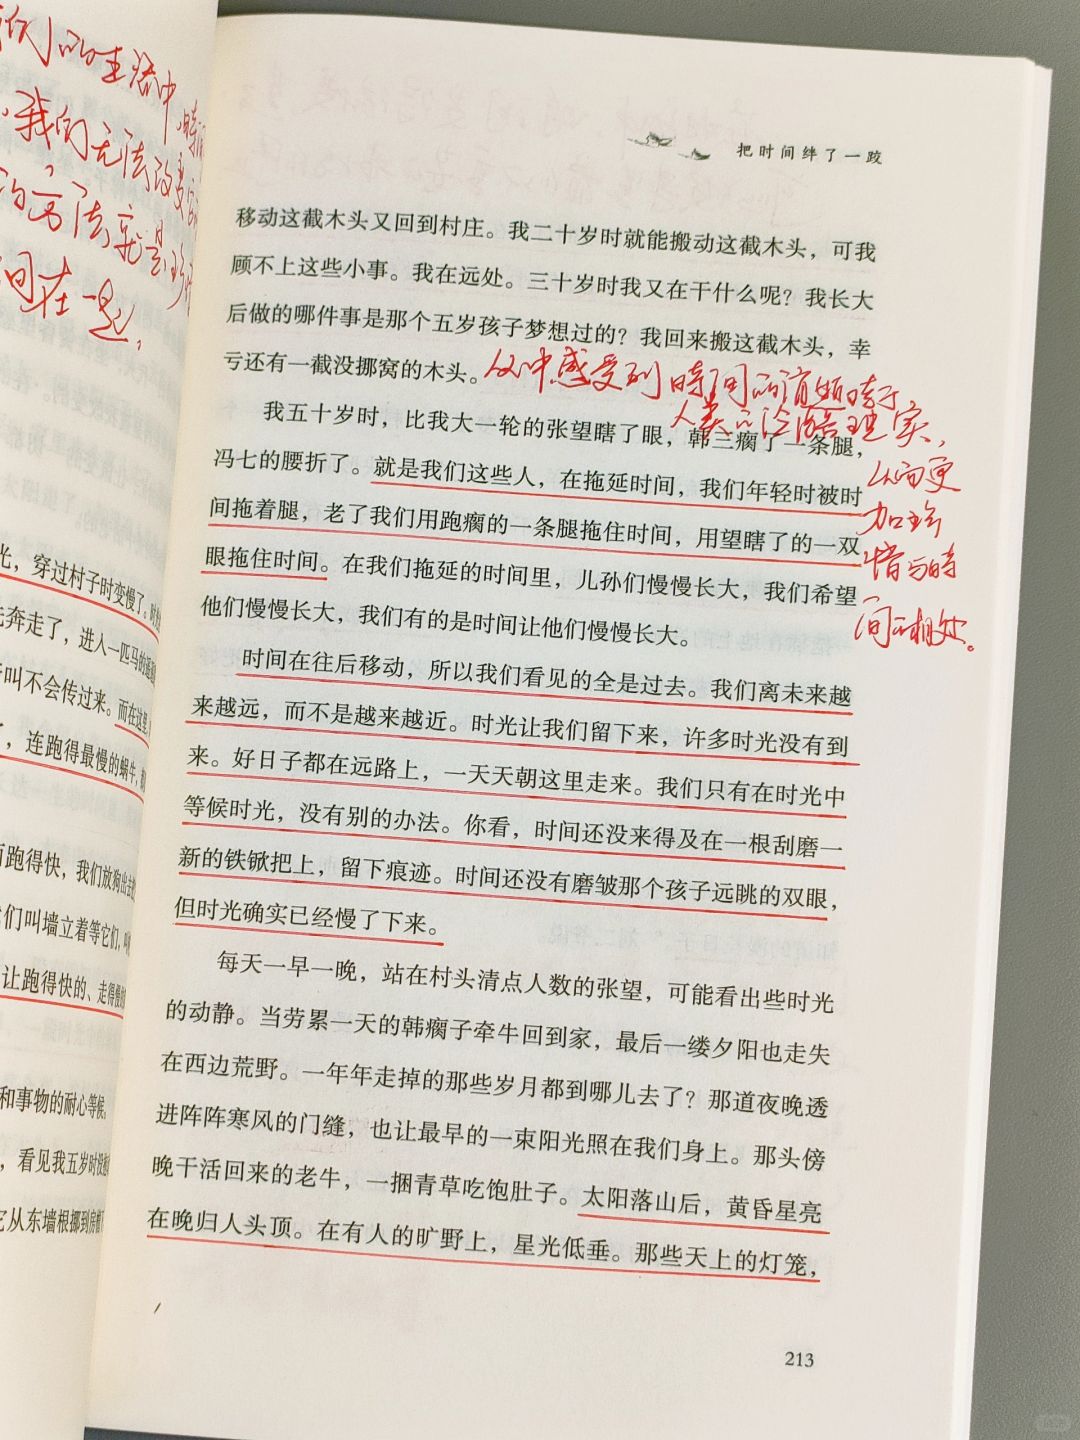 们的生活中,時间
我们无法改变
的方法就是珍
间在一起,
光，穿过村子时变慢了。时
奔走了，进入一匹马的遥
叫不会传过来。而在这里
，连跑得最慢的蜗牛，都
跑得快，我们放狗出去
们叫墙立着等它们，
让跑得快的、走得慢的
和事物的耐心等候。
，看见我五岁时没
它从东墙根挪到房
把时间绊了一跤
移动这截木头又回到村庄。我二十岁时就能搬动这截木头，可我
顾不上这些小事。我在远处。三十岁时我又在干什么呢？我长大
后做的哪件事是那个五岁孩子梦想过的？我回来搬这截木头，幸
亏还有一截没挪窝的木头。
从中感受到時间的消
人类的
从而更
加珍
惜与時
间的相处。
我五十岁时，比我大一轮的张望瞎了眼，韩三瘸了一条腿，
冯七的腰折了。就是我们这些人，在拖延时间，我们年轻时被时
间拖着腿，老了我们用跑瘸的一条腿拖住时间，用望瞎了的一双
眼拖住时间。在我们拖延的时间里，儿孙们慢慢长大，我们希望
他们慢慢长大，我们有的是时间让他们慢慢长大。
时间在往后移动，所以我们看见的全是过去。我们离未来越
来越远，而不是越来越近。时光让我们留下来，许多时光没有到
来。好日子都在远路上，一天天朝这里走来。我们只有在时光中
等候时光，没有别的办法。你看，时间还没来得及在一根刮磨一
新的铁锨把上，留下痕迹。时间还没有磨皱那个孩子远眺的双眼，
但时光确实已经慢了下来。
每天一早一晚，站在村头清点人数的张望，可能看出些时光
的动静。当劳累一天的韩瘸子牵牛回到家，最后一缕夕阳也走失
在西边荒野。一年年走掉的那些岁月都到哪儿去了？那道夜晚透
进阵阵寒风的门缝，也让最早的一束阳光照在我们身上。那头傍
晚干活回来的老牛，一捆青草吃饱肚子。太阳落山后，黄昏星亮
在晚归人头顶。在有人的旷野上，星光低垂。那些天上的灯笼，
213